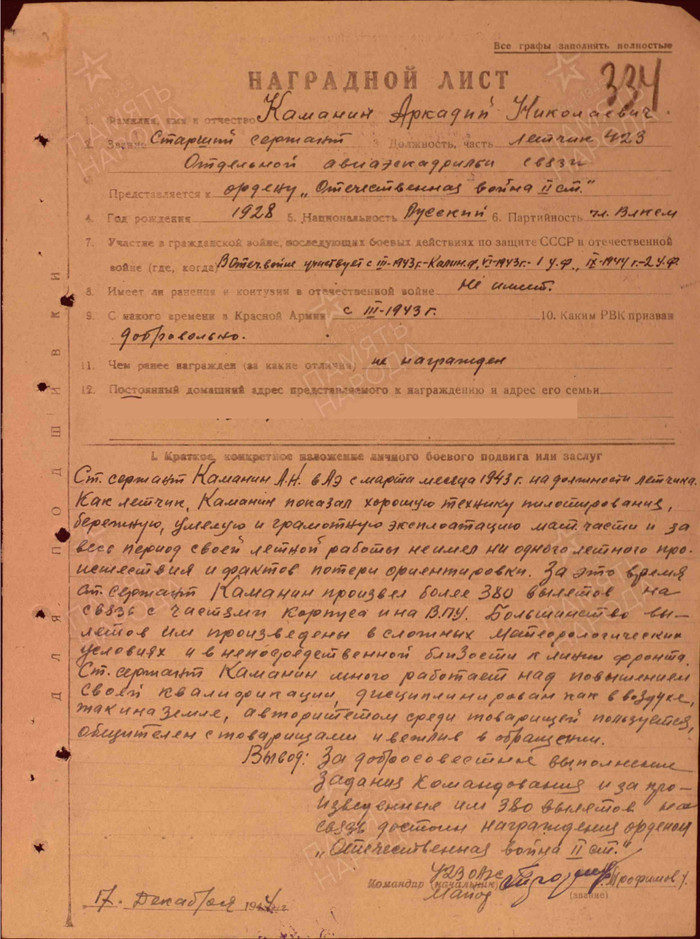 Все графы заполнять полностью
334
НАГРАДНОЙ ЛИСТ
1. Фамилия, имя и отчество Каманин Аркадий Николаевич.
2. Звание Старший сержант 3. Должность, часть летчик 423
Отдельной авиаэскадрильи связи
Представляется к ордену „Отечественная война II ст."
4. Год рождения 1928 5. Национальность Русский 6. Партийность чл. Влксм
7. Участие в гражданской войне, последующих боевых действиях по защите СССР и отечественной
войне (где, когда) В Отеч. войне участвует с III-1943г.-Калин.ф, VI-1943г.-1 У.ф., IX-1944г.-2 У.ф.
8. Имеет ли ранения и контузии в отечественной войне Не имеет.
9. С какого времени в Красной Армии с III-1943 г. 10. Каким РВК призван
добровольно.
11. Чем ранее награжден (за какие отличия) не награжден
12. Постоянный домашний адрес представляемого к награждению и адрес его семьи
I. Краткое, конкретное изложение личного боевого подвига или заслуг
Ст. сержант Каманин А.Н. в АЭ с марта месяца 1943 г. на должности летчика.
Как летчик, Каманин показал хорошую технику пилотирования,
бережную, умелую и грамотную эксплоатацию мат.части и за
весь период своей летной работы не имел ни одного летного про-
исшествия и фактов потери ориентировки. За это время
ст. сержант Каманин произвел более 380 вылетов на
связь с частями корпуса и на В.ПУ. Большинство вы-
летов им произведены в сложных метеорологических
условиях и в непосредственной близости к линии фронта.
Ст. сержант Каманин много работает над повышением
своей квалификации, дисциплинирован как в воздухе,
так и на земле, авторитетом среди товарищей пользуется,
общителен с товарищами и вежлив в обращении.
Вывод: За добросовестное выполнение
задания командования и за про-
изведенные им 380 вылетов на
связь достоин награждения орденом
„Отечественная война II ст."
Командир (начальник) 423 ОАЭС
Майор /Трофимов/.
(звание)
17. Декабря 1944 г.
ДЛЯ ПОДШИВКИ
ПАМЯТЬ НАРОДА